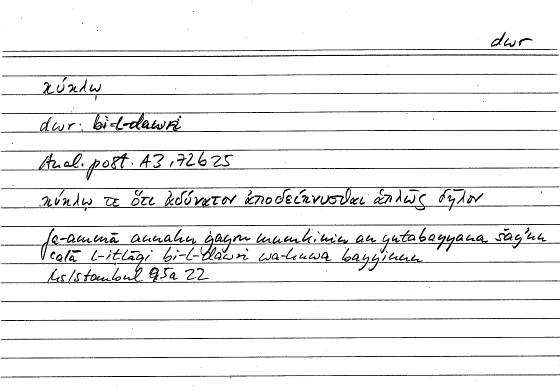 dwr
κύκλῳ
dwr: bi-l-dawri
Anal. post. A3, 72b25
κύκλῳ τε ὅτι ἀδύνατον ἀποδείκνυσθαι ἁπλῶς δῆλον
fa-ammā annahu ġayru mumkinin an yutabayyana šayʾun
ʿalā l-iṭlāqi bi-l-dawri wa-huwa bayyinun
Ms Istanbul 95a 22